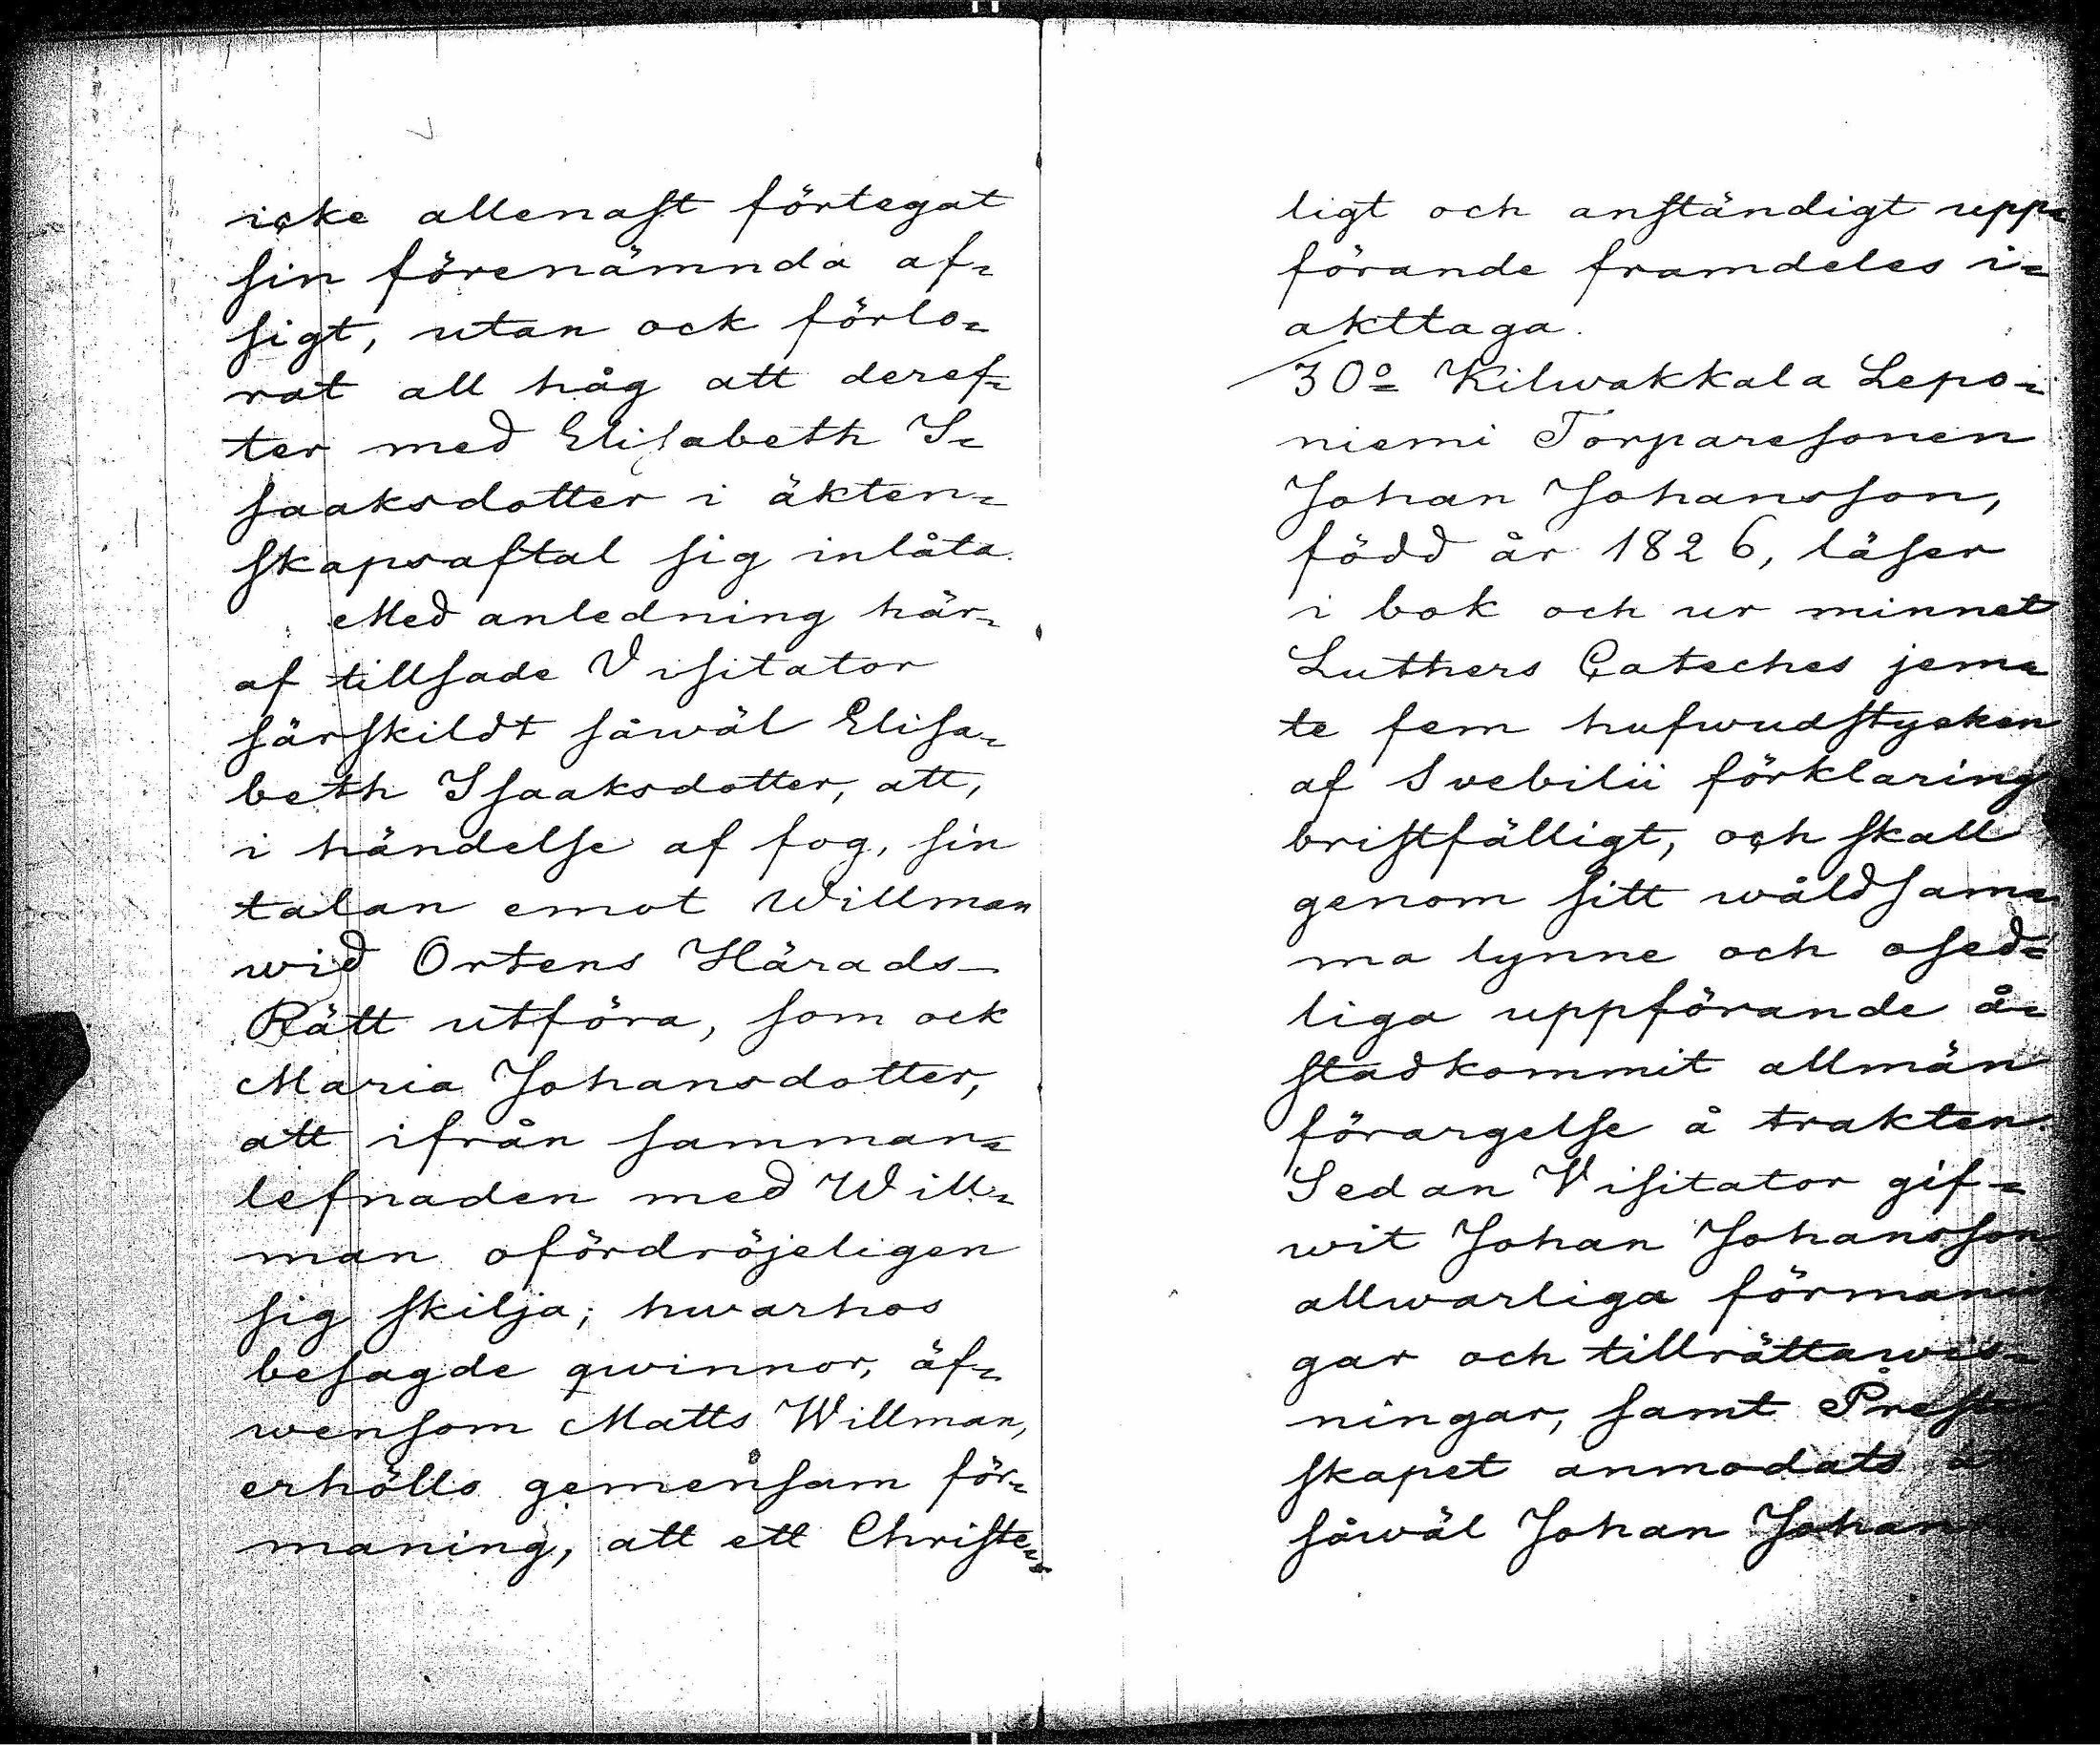 icke allenast förtegat
sin förenämnda af=
sigt, utan ock förlo=
rat all håg att deref=
ter med Elisabeth I=
saaksdotter i äkten=
skapsaftal sig inlåta.
Med anledning här=
af tillsade Visitator
särskildt såwäl Elisa=
beth Isaaksdotter, att,
i händelse af fog, sin
talan emot Willman
wid Ortens Härads-
Rätt utföra, som ock
Maria Johansdotter,
att ifrån samman=
lefnaden med Will=
man ofördröjeligen
sig skilja; hwarhos
besagde qwinnor, äf=
wensom Matts Willman,
erhölls gemensam för=
maning, att ett Christe=
ligt och anständigt upp=
förande framdeles i=
akttaga.
30º Kilwakkala Lepo=
niemi Torparesonen
Johan Johansson,
född år 1826, läser
i bok och ur minnet
Luthers Cateches jem=
te fem hufwudstycken
af Svebilii förklaring
bristfälligt, och skall
genom sitt wåldsam=
ma lynne och osed=
liga uppförande å=
stadkommit allmän
förargelse å trakten.
Sedan Visitator gif=
wit Johan Johansson
allwarliga förmanin
gar och tillrättawis=
ningar, samt Preste
skapet anmodats
såwäl Johan Johans